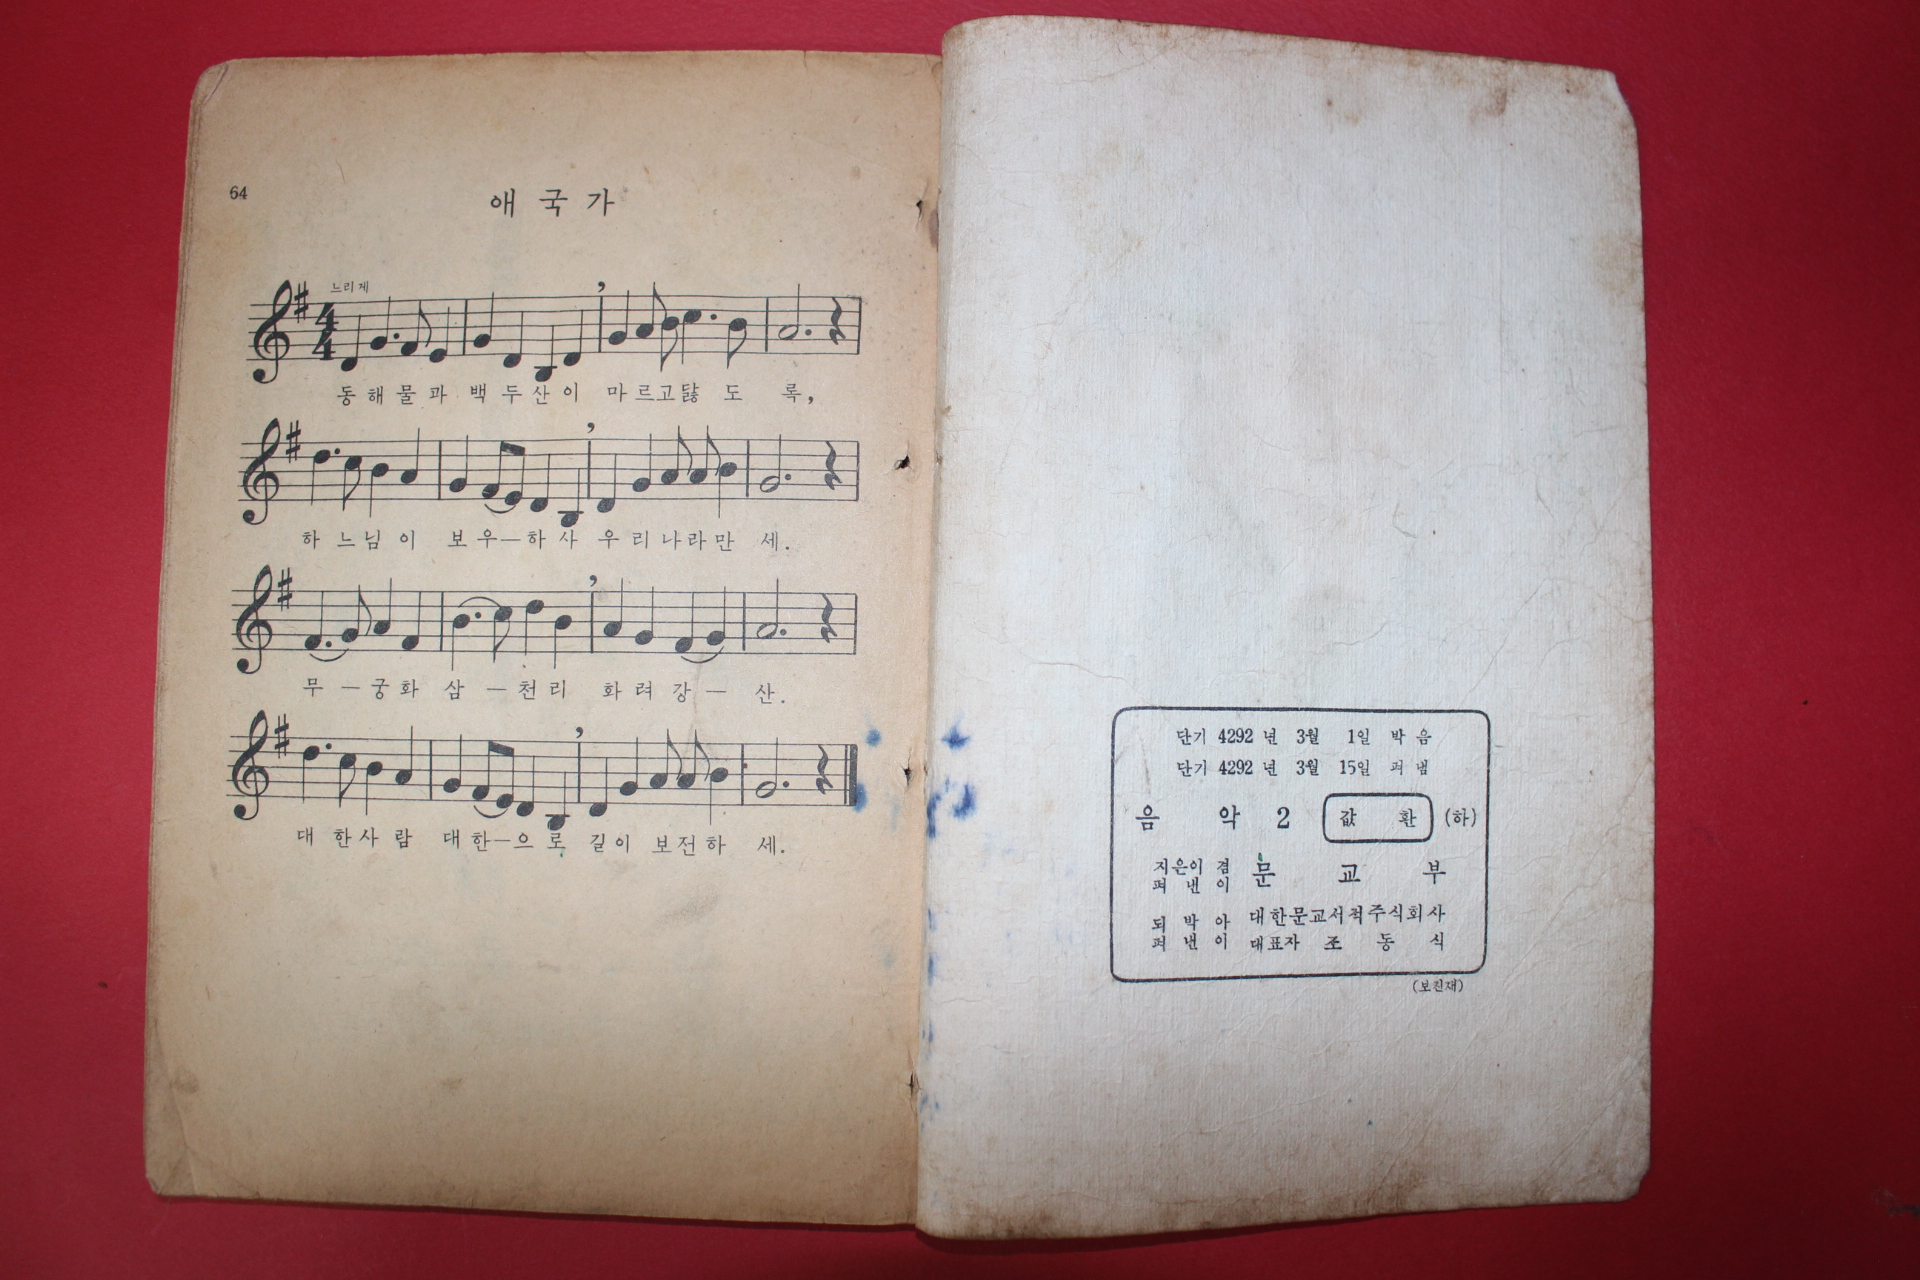 64
애 국 가
느리게
동 해 물 과 백 두 산 이 마 르 고 닳 도 록,
하 느 님 이 보 우 — 하 사 우 리 나 라 만 세.
무 — 궁 화 삼 — 천 리 화 려 강 — 산.
대 한 사 람 대 한 — 으 로 길 이 보 전 하 세.
단기 4292 년 3월 1일 박 음
단기 4292 년 3월 15일 펴 냄
음 악 2 값 환 (하)
지은이 겸
펴 낸 이 문 교 부
되 박 아 대한문교서적주식회사
펴 낸 이 대표자 조 동 식
(보진재)